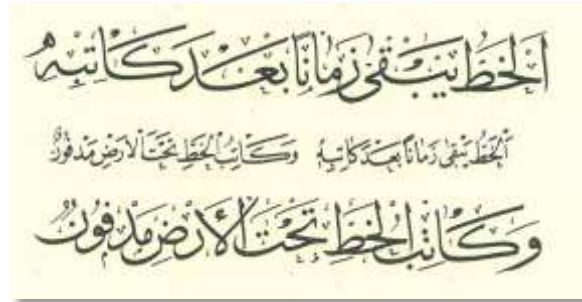 اَلْخَطُّ يَبْقىٰ زَمَانًا بَعْدَ كَاتِبِهِ
اَلْخَطُّ يَبْقىٰ زَمَانًا بَعْدَ كَاتِبِهِ وَكَاتِبُ الْخَطِّ تَحْتَ الْأَرْضِ مَدْفُونٌ
وَكَاتِبُ الْخَطِّ تَحْتَ الْأَرْضِ مَدْفُونٌ